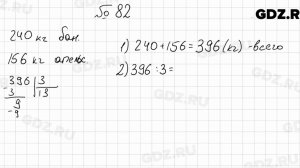 № 82
GDZ.RU
240 кг бан.
156 кг апельс.
1) 240+156=396 (кг) - всего
2) 396:3=
396 | 3
- 3 | 13
9
- 9